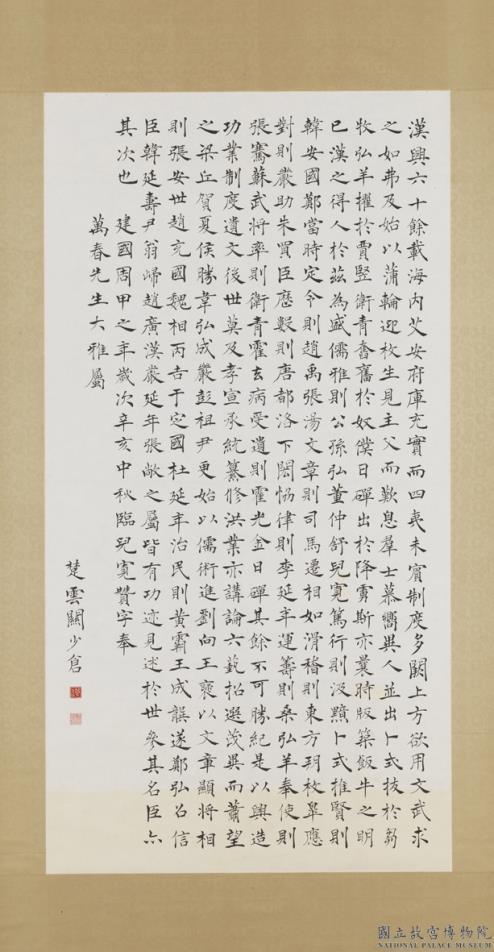 漢興六十餘載海内艾安府庫充實而四夷未賓制度多闕上方欲用文武求
之如弗及始以蒲輪迎枚生見主父而歎息羣士慕嚮異人並出卜式拔於芻
牧弘羊擢於賈豎衛青奮舊於奴僕日磾出於降虜斯亦曩時版築飯牛之明
已漢之得人於兹為盛儒雅則公孫弘董仲舒兒寬篤行則汲黯卜式推賢則
韓安國鄭當時定令則趙禹張湯文章則司馬遷相如滑稽則東方玥枚皋應
對則嚴助朱買臣歷數則唐都洛下閎恊律則李延年運籌則桑弘羊奉使則
張騫蘇武將率則衛青霍去病受遺則霍光金日磾其餘不可勝紀是以興造
功業制度遺文後世莫及孝宣承統纂修洪業亦講論六藝招選茂異而蕭望
之梁丘賀夏侯勝韋弘成嚴彭祖尹更始以儒術進劉向王褒以文章顯將相
則張安世趙充國魏相丙吉于定國杜延年治民則黃霸王成龔遂鄭弘召信
臣韓延壽尹翁歸趙廣漢嚴延年張敞之屬皆有功迹見述於世參其名臣亦
其次也 建國周甲之年歲次辛亥中秋臨兒寬贊字奉
萬春先生大雅屬
楚雲關少倉
國立故宮博物院
NATIONAL PALACE MUSEUM